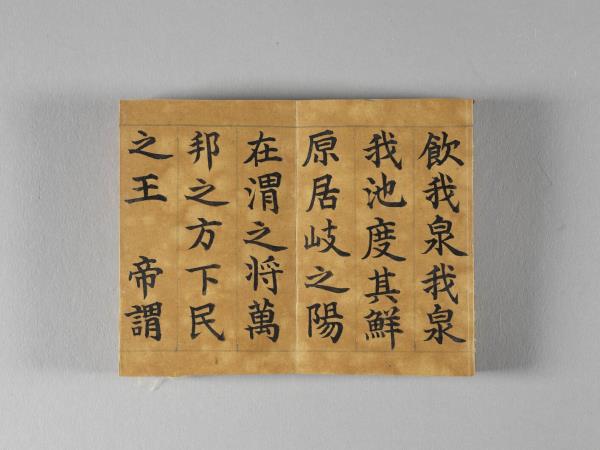 飲我泉我泉
我池度其鮮
原居岐之陽
在渭之将萬
邦之方下民
之王　帝謂